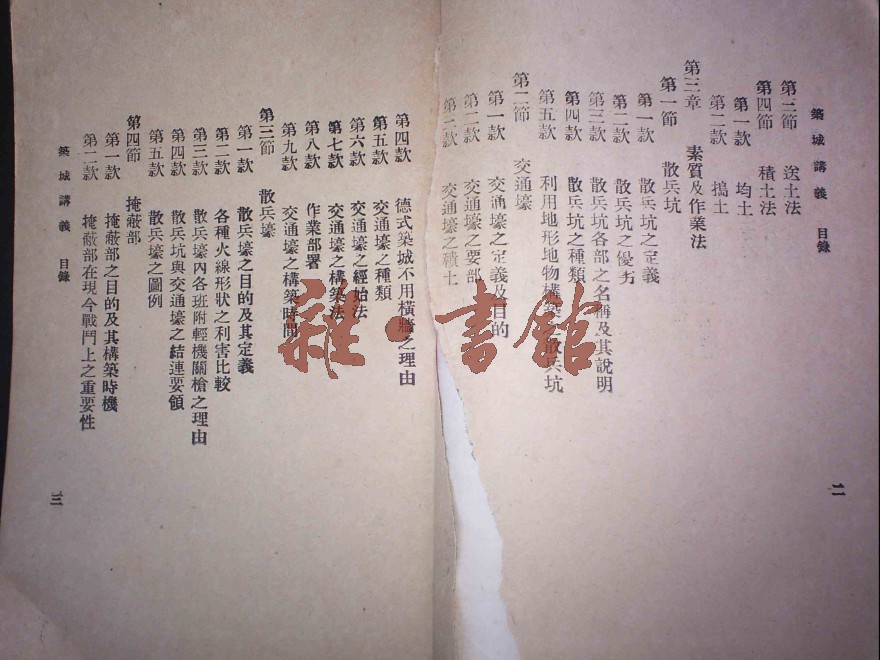 築城講義 目錄
第三節 送土法
第四節 積土法
第一款 均土
第二款 搗土
第三章 素質及作業法
第一節 散兵坑
第一款 散兵坑之定義
第二款 散兵坑之優劣
第三款 散兵坑各部之名稱及其說明
第四款 散兵坑之種類
第五款 利用地形地物構築散兵坑
第二節 交通壕
第一款 交通壕之定義及目的
第二款 交通壕之要部
第三款 交通壕之積土
二
第四款 德式築城不用橫牆之理由
第五款 交通壕之種類
第六款 交通壕之經始法
第七款 交通壕之構築法
第八款 作業部署
第九款 交通壕之構築時間
第三節 散兵壕
第一款 散兵壕之目的及其定義
第二款 各種火線形狀之利害比較
第三款 散兵壕內各班附輕機關槍之理由
第四款 散兵坑與交通壕之結連要領
第五款 散兵壕之圖例
第四節 掩蔽部
第一款 掩蔽部之目的及其構築時機
第二款 掩蔽部在現今戰鬥上之重要性
築城講義 目錄
三
雜·書館